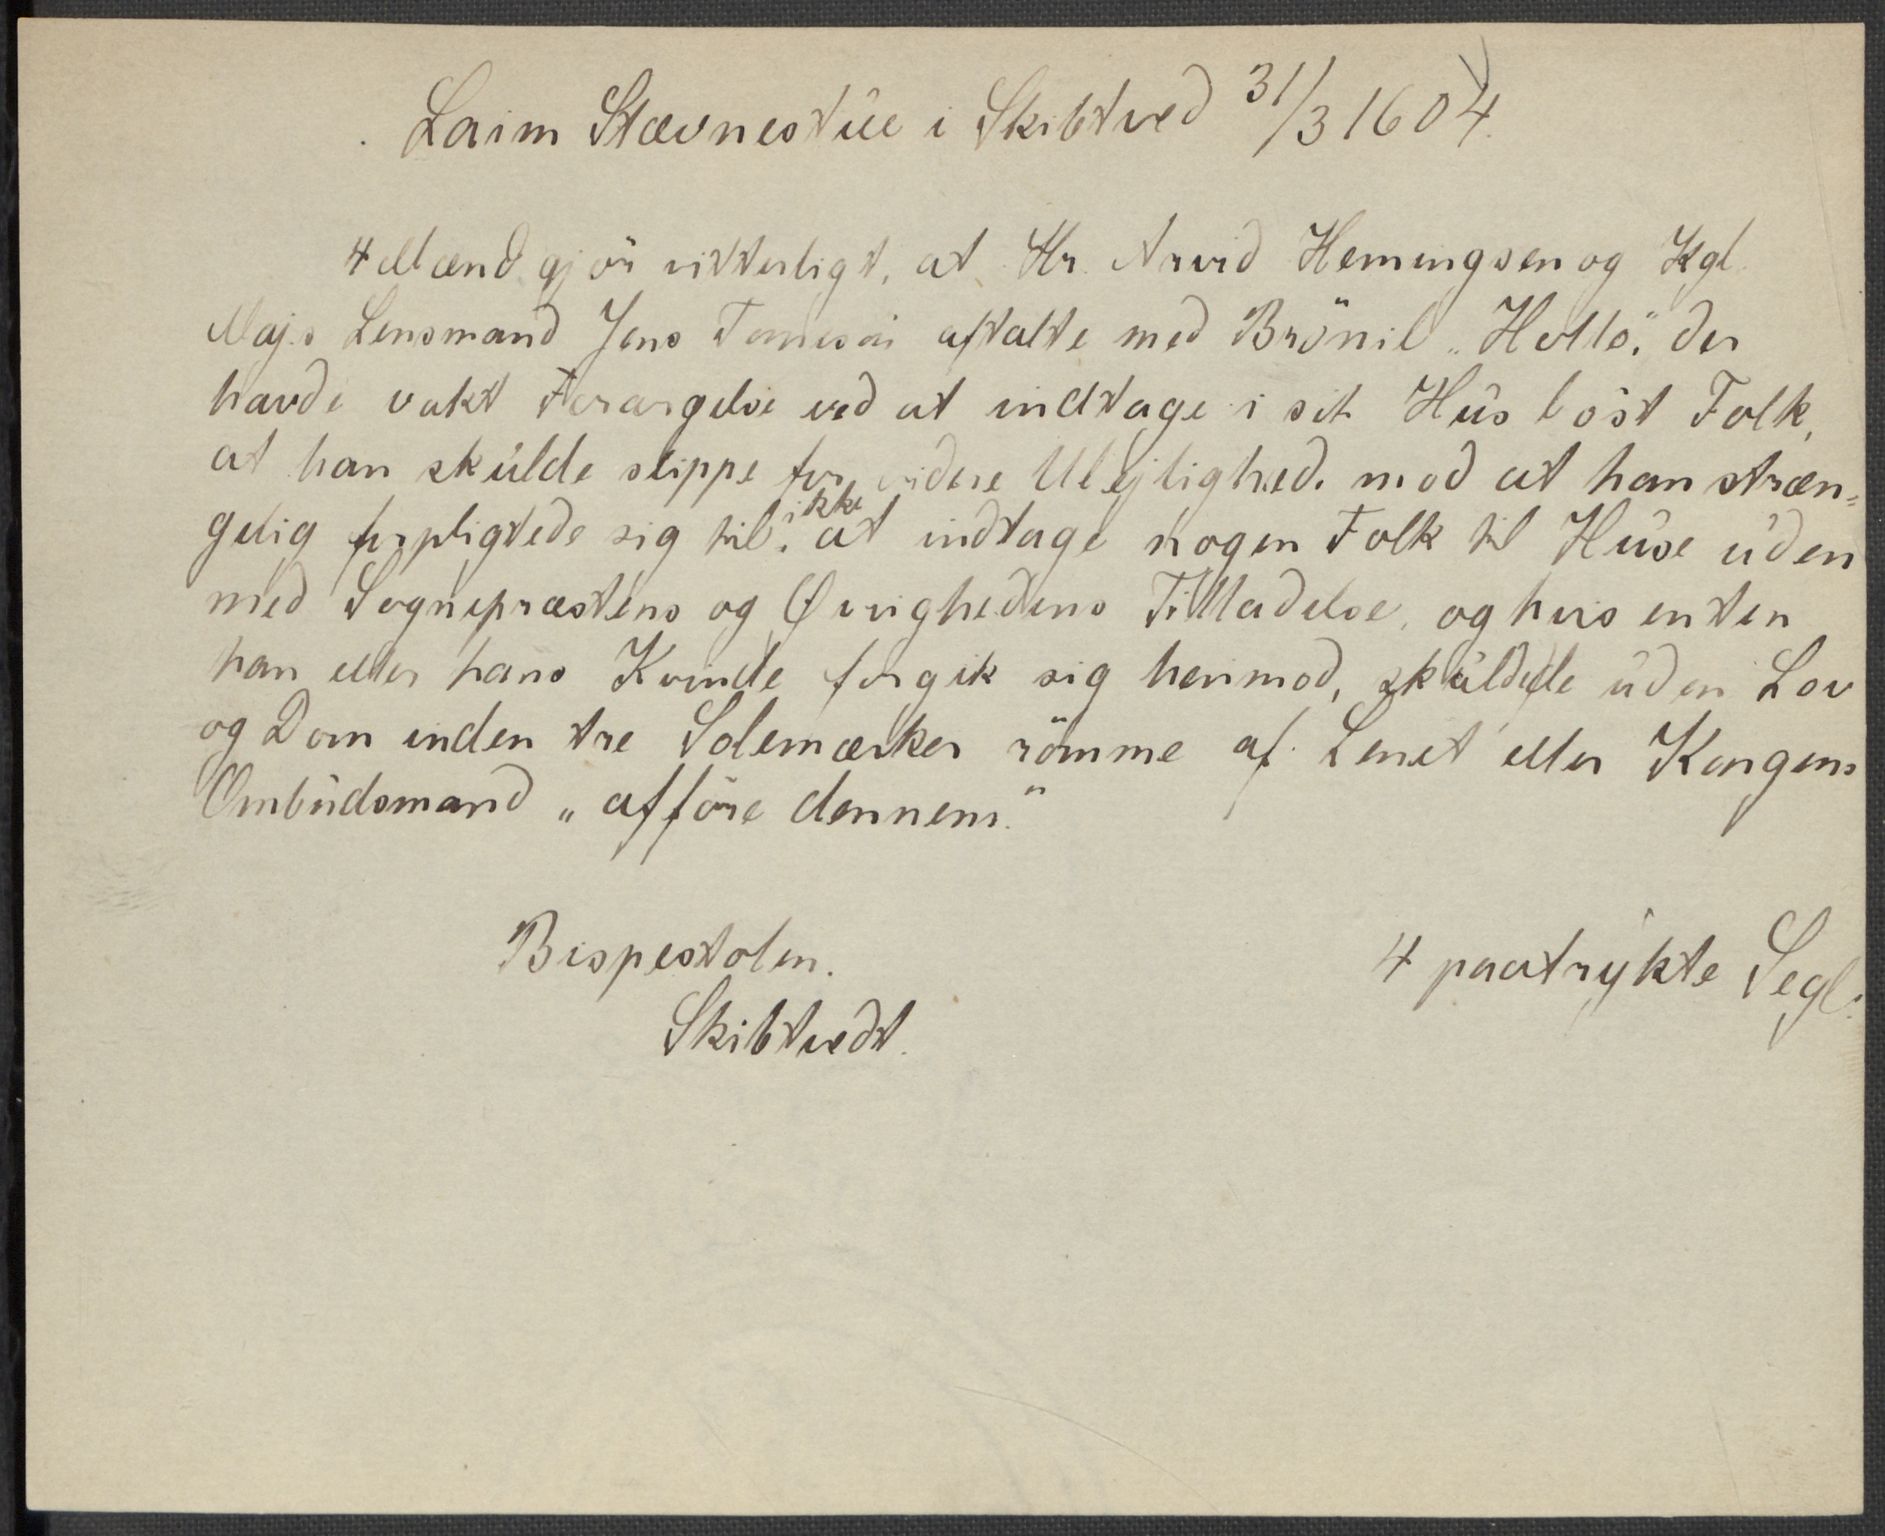 Laim Stævnestue i Skibtved 31/3 1604.
4 Mænd gjör vitterligt, at Hr. Arvid Hemingsen og Kgl.
Maj.s Lensmand Jens aftalte med Brönil „Hollo", der
havde vakt Forargelse ved at indtage i sit Hus löst Folk,
at han skulde slippe for videre Ulejlighed. mod at han stræn=
gelig forpligtede sig til ikke at indtage nogen Folk til Huse uden
med Sogneprestens og Øvrighedens Tilladelse, og hvis enten
han eller hans Kvinde forgik sig herimod, skulde de uden Lov
og Dom inden tre Solemærker römme af Lenet eller Kongens
Ombudsmand „afföre dennem."
Bispestolen.
4 paatrykte Segl.
Skibtvedt.